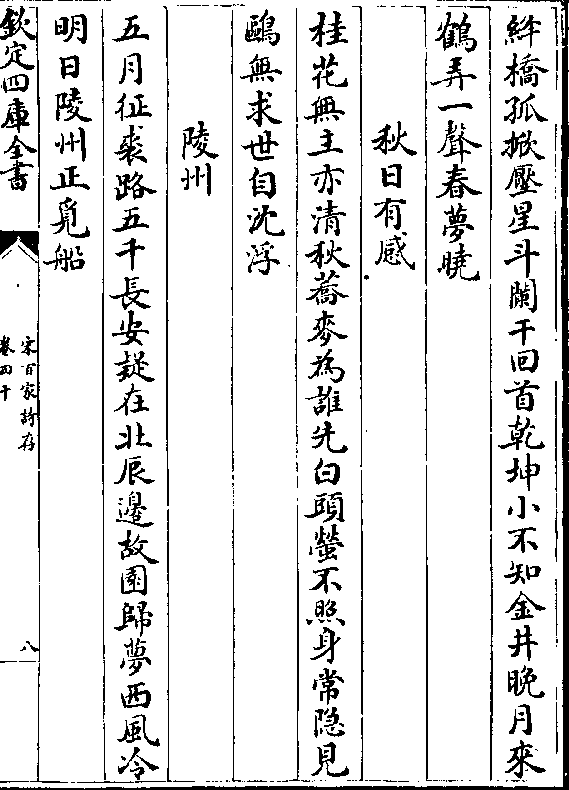 絳橋孤掀壓星斗闌干回首乾坤小不知金井晚月來
鶴弄一聲春夢曉
秋日有感
桂花無主亦清秋蕎麥為誰先白頭螢不照身常隐見
鷗無求世自沈浮
陵州
五月征裘路五千長安疑在北辰邊故園歸夢西風冷
明日陵州正覓船
欽定四庫全書
宋百家詩存
卷四十
八